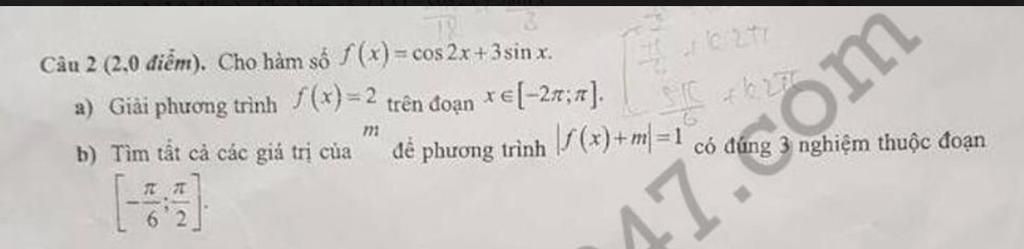 Câu 2 (2,0 điểm). Cho hàm số f(x) = cos 2x + 3 sin x.
a) Giải phương trình f(x) = 2 trên đoạn x ∈ [-2π; π].
b) Tìm tất cả các giá trị của m để phương trình |f(x) + m| = 1 có đúng 3 nghiệm thuộc đoạn
[-π/6; π/2].
+ k2π
5π/6 + k2π
47.com